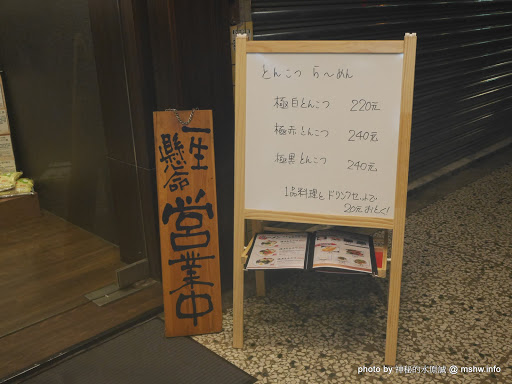 一生
懸命
営業中
とんこつ らーめん
極白とんこつ 220元
極赤とんこつ 240元
極黒とんこつ 240元
1品料理とドリンクセットで
20元おとく!
photo by 神秘的水瓶誠 @ mshw.info